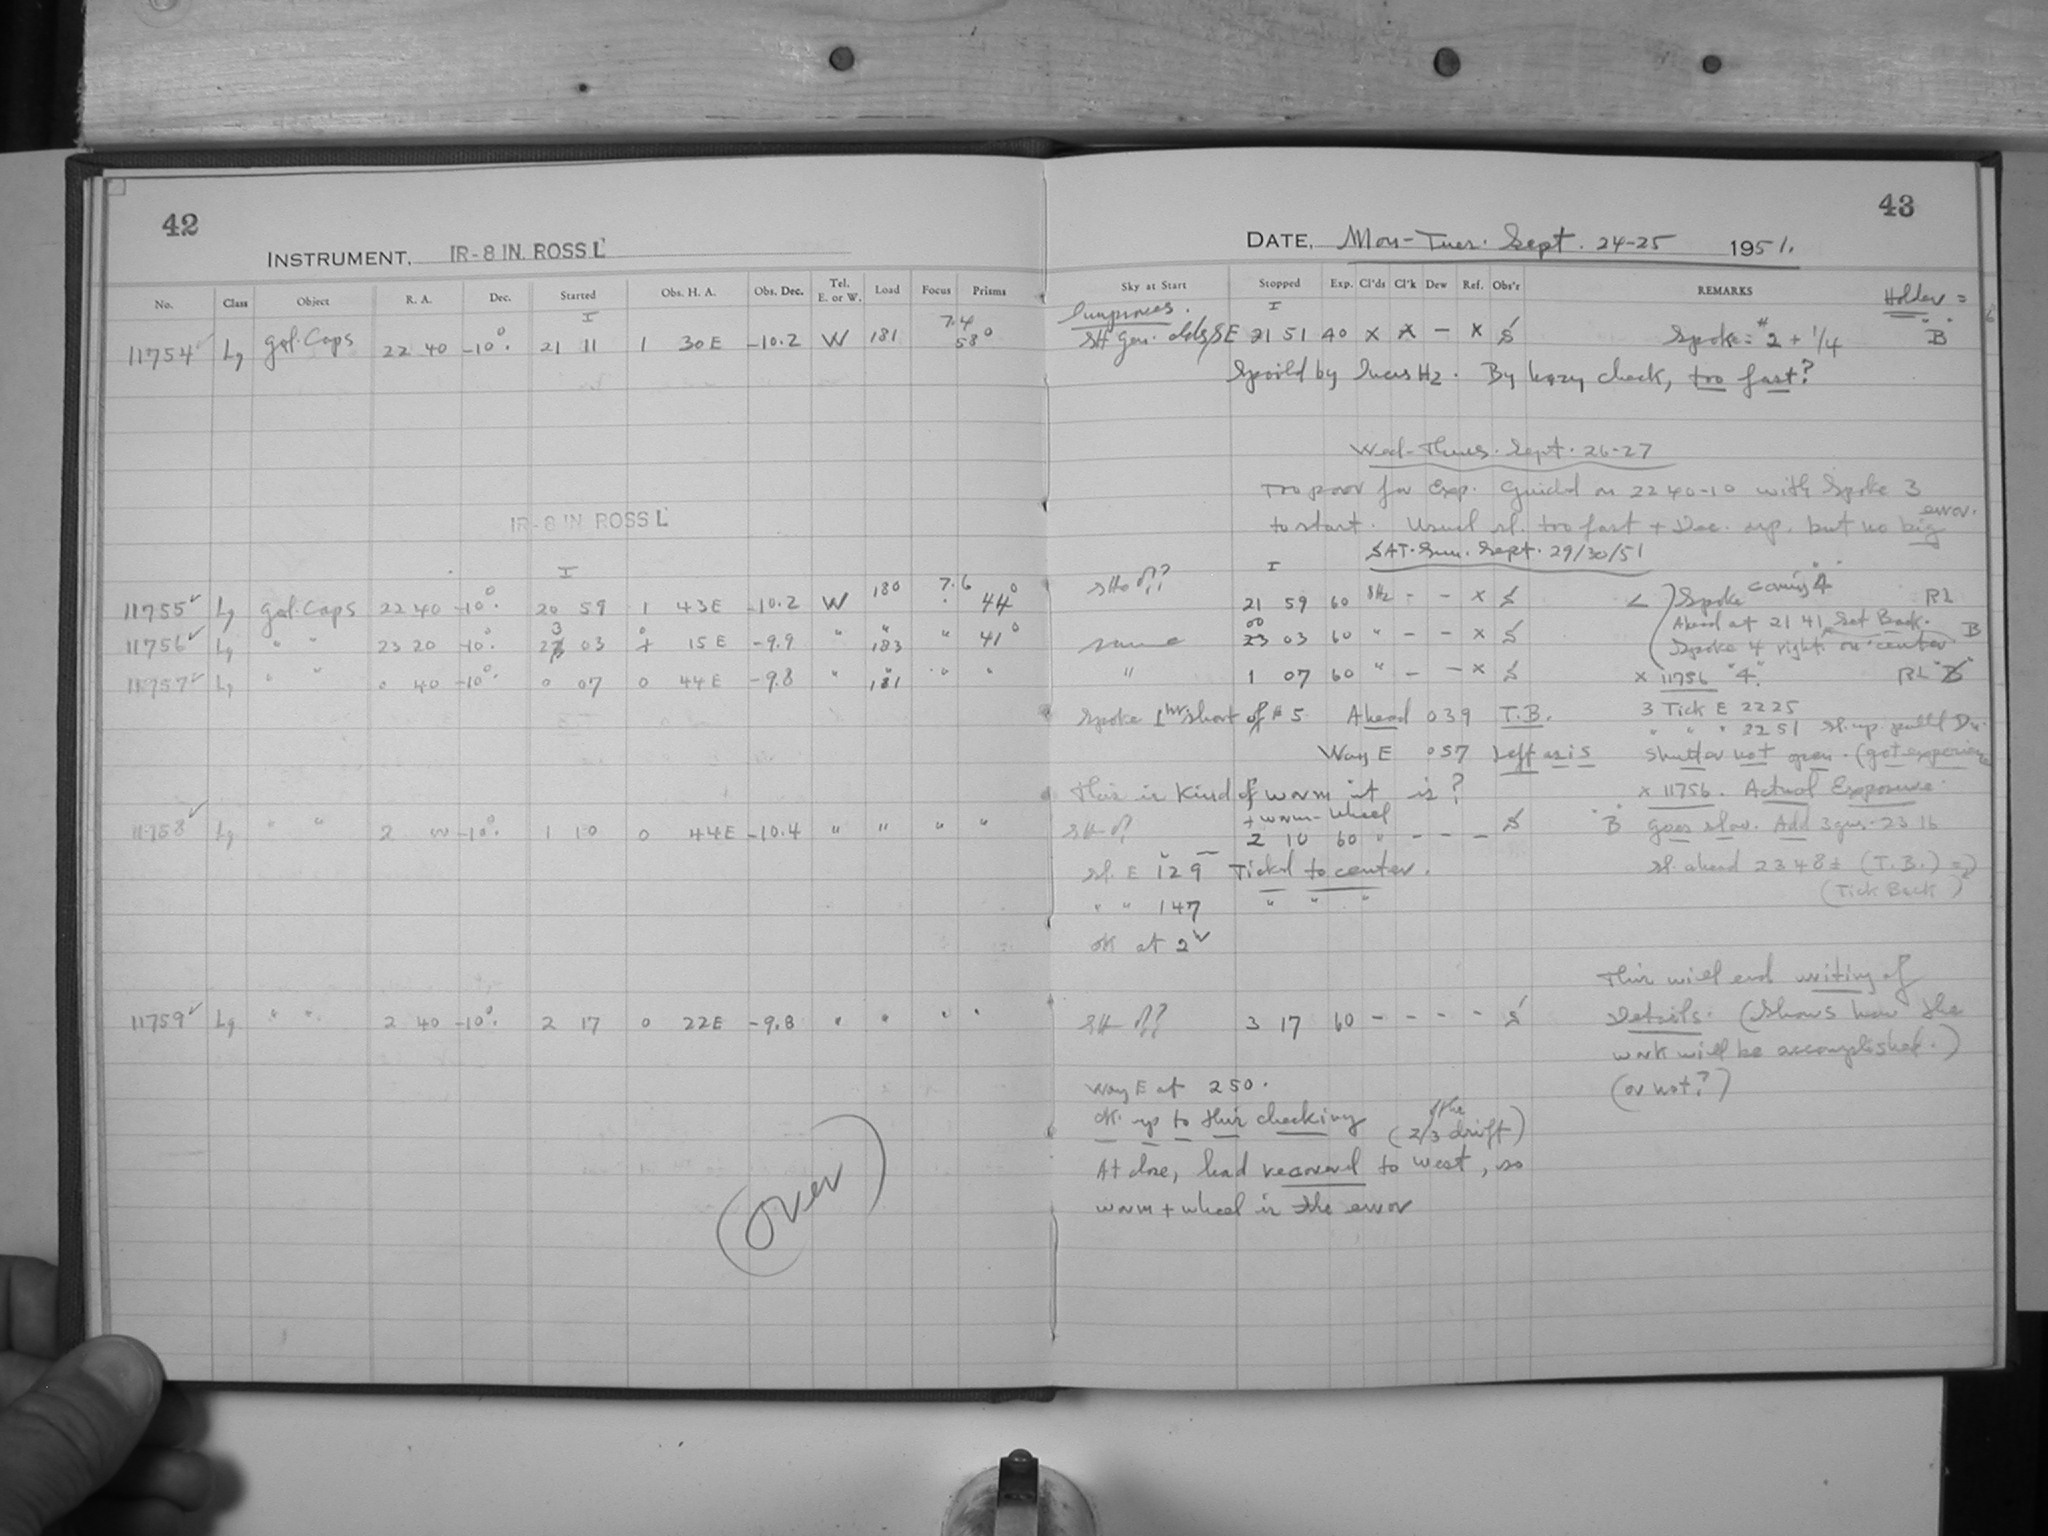 42
INSTRUMENT, IR-8 IN. ROSS L
No. Class Object R. A. Dec. Started Obs. H. A. Obs. Dec. Tel. E. or W. Load Focus Prisms
11754 Lg gal. Caps 22 40 -10°. 21 11 1 30 E -10.2 W 181 7.4 58°
IR-8 IN ROSS L
11755 Lg gal. Caps 22 40 -10°. 20 59 1 43 E -10.2 W 180 7.6 44°
11756 Lg " " 23 20 -10°. 03 15 E -9.9 " 183 " 41°
11757 Lg " " 0 40 -10°. 0 07 0 44 E -9.8 " 181 " "
11758 Lg " " 2 -10°. 1 10 0 44 E -10.4 " " " "
11759 Lg " " 2 40 -10°. 2 17 0 22 E -9.8 " " " "
(over)
43
DATE, Mon-Tues. Sept. 24-25 1951.
Sky at Start Stopped Exp. Cl'ds Cl'k Dew Ref. Obs'r REMARKS Holder =
21 51 40 x x - x Spoke: # 2 + 1/4 "B"
By check, too fast?
Wed-Thurs. Sept. 26-27
Too poor for Exp. Guided on 22 40-10 with Spoke 3
to start. Usual too fast + Dec. but no big error.
SAT-Sun. Sept. 29/30/51
21 59 60 - - x Spoke coming "4"
Ahead at 21 41 Set Back. B
same 03 60 " - - x Spoke 4 right on center
" 1 07 60 " - - x x 11756 "4"
Spoke 1 hr short of # 5 Ahead 0 39 T.B. 3 Tick E 22 25
" " " 22 51
Way E 0 57 Left as is Shutter not open.
This is kind of worm it is? x 11756. Actual Exposure
+ worm-wheel
2 10 60 " - - - "B" Goes slow. Add 23 16
E 1 29 Tick'd to center. ahead 23 48± (T.B.) =
" " 1 47 " " " (Tick Back)
OK at 2
This will end writing of
3 17 60 - - - - Details. (Shows how the
work will be accomplished.)
Way E at 2 50. (or not?)
OK. up to this checking (2/3 the drift)
At close, had recovered to west, so
worm + wheel is the error